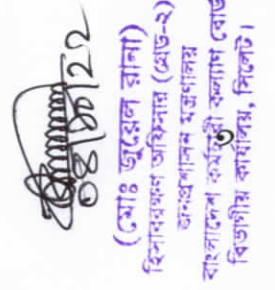 ০৪/১০/২২
(মোঃ জুয়েল রানা)
হিসাবরক্ষণ অফিসার (গ্রেড-২)
জনপ্রশাসন মন্ত্রণালয়
বাংলাদেশ কর্মচারী কল্যাণ বোর্ড
বিভাগীয় কার্যালয়, সিলেট।